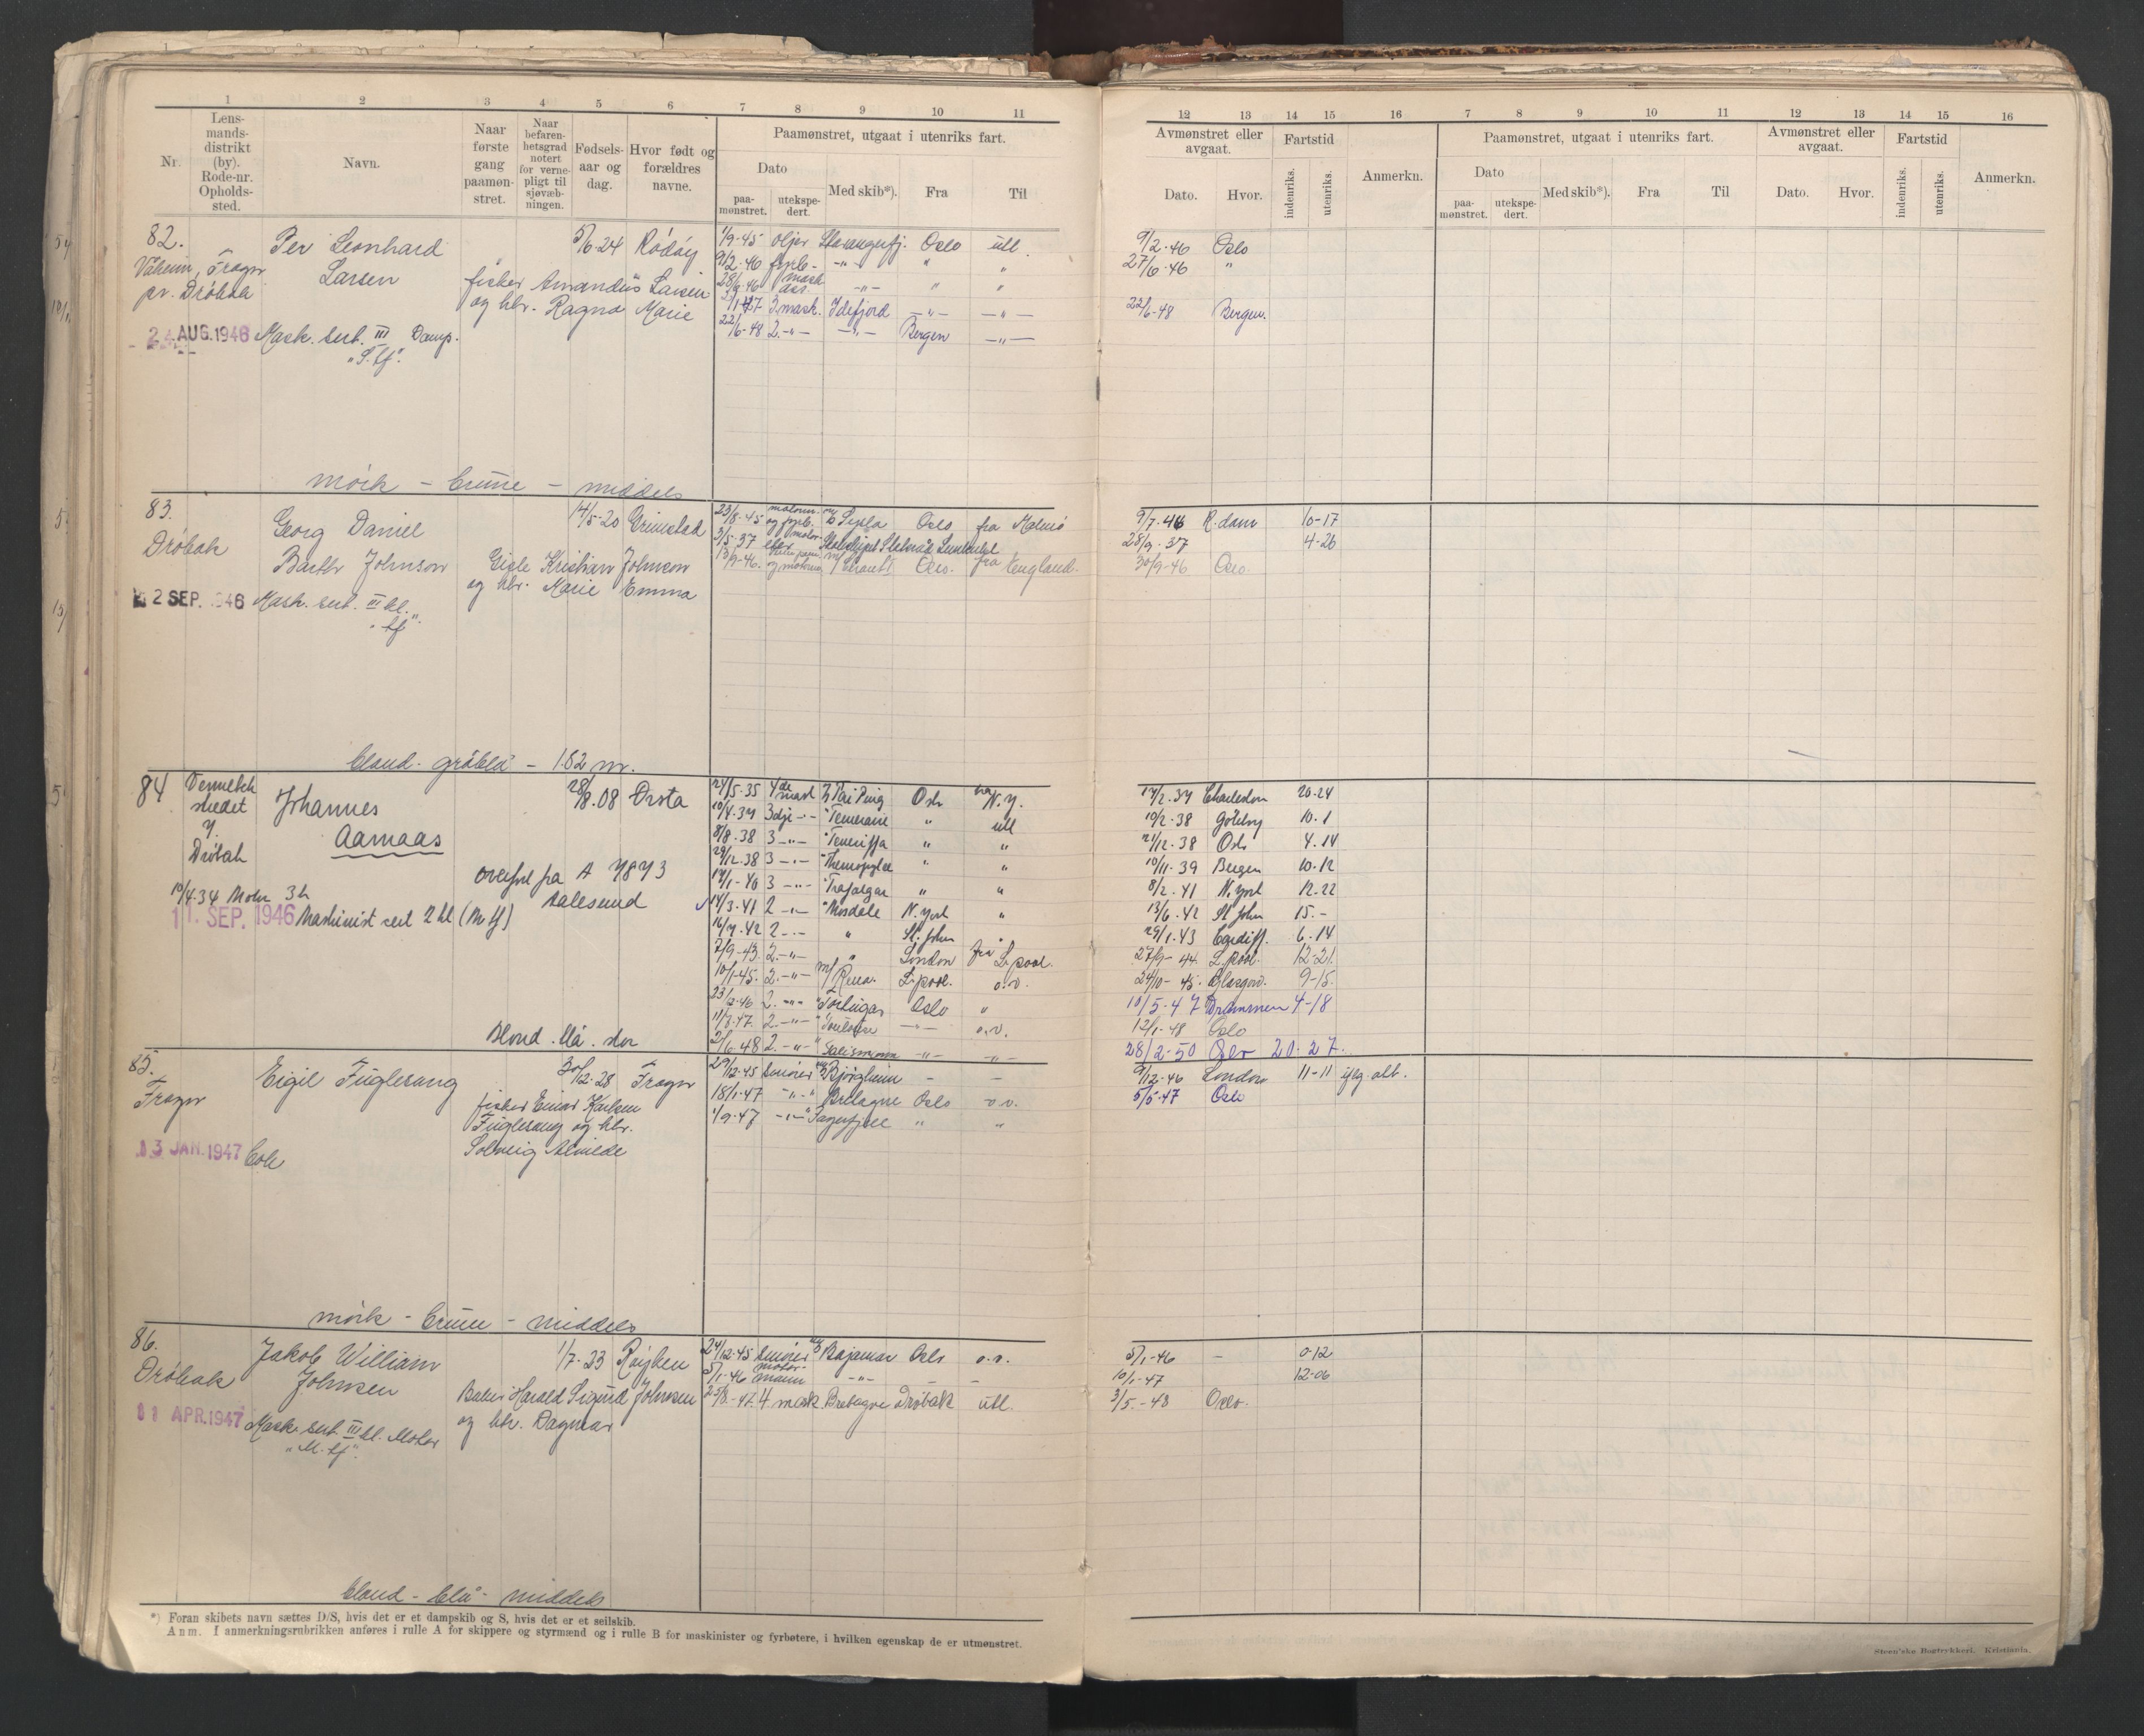 1 2 3 4 5 6 7 8 9 10 11
Nr.
Lens-
mands-
distrikt
(by).
Rode-nr.
Opholds-
sted.
Navn.
Naar
første
gang
paamøn-
stret.
Naar
befaren-
hetsgrad
notert
for verne-
pligt til
sjøvæb-
ningen.
Fødsels-
aar og
dag.
Hvor født og
forældres
navne.
Paamønstret, utgaat i utenriks fart.
Dato
paa-
mønstret.
utekspe-
dert.
Med skib*).
Fra
Til
12 13 14 15 16 7 8 9 10 11 12 13 14 15 16
Avmønstret eller
avgaat.
Dato. Hvor.
Fartstid
indenriks.
utenriks.
Anmerkn.
Paamønstret, utgaat i utenriks fart.
Dato
paa-
mønstret.
utekspe-
dert.
Med skib*).
Fra
Til
Avmønstret eller
avgaat.
Dato. Hvor.
Fartstid
indenriks.
utenriks.
Anmerkn.
82.
Per Leonhard
Larsen
5/6-24 Rödöy
Frogn
pr. Dröbak
fisker Amandus Larsen
og htr. Ragna Marie
24 AUG. 1946 Mask. sert. III Damp.
1/9-45 oljer Stavangerfj. Oslo utl.
9/2-46 fyrb. -"- " "
28/6-46 mask. ass. -"- " "
3. mask. Idefjord -"- -"-
22/6-48 2. -"- -"- Bergen -"-
9/2-46 Oslo
27/6-46 "
22/6-48 Bergen.
mörk - brune - middels
83.
Dröbak
Georg Daniel
Barth Johnson
14/5-20 Grimstad
Gisle Kristian Johnson
og htr. Marie Emma
2 SEP. 1946 Mask. sert. III kl.
23/8-45 motorm. og fyrb. Oslo fra Malmö
3/5-37 elev Skoleskipet
13/9-46. Oslo. fra England.
9/7-46 R.dam 10-17
28/9-37 4-26
30/9-46 Oslo.
blond - gråblå - 1.82 m.
84
Dröbak
Johannes
Aamaas
28/8.08 Ørsta
overført fra A 7873
Aalesund
10/4.34 Motor 3 kl
11. SEP. 1946 Maskinist sert 2 kl (M f)
24/5-35 4de mask Tai Ping Oslo fra N.Y.
10/4-37 3dje -"- Temeraire " utl
8/8-38 3 -"- Teneriffa " "
29/12-38 3 -"- Thermopylæ " "
3 -"- Trafalgar " "
14/3-41 2 -"- Mosdale N.York "
16/7-42 2 -"- " St. John "
7/9-43. 2. -"- " London fra L.pool.
10/1-45. 2. -"- M/ Rena. L.pool. o.v.
2. -"- Oslo "
11/3-47. 2. -"- Toulouse -"- o.v.
2/6-48 2. -"- Talisman -"- -"-
Charleston 20-24
10/2-38 Göteborg 10.1
21/12-38 Oslo 4.14
10/11-39 Bergen 10-12
8/2-41 N.York 12-22
13/6-42 St John 15.-
29/1-43 Cardiff. 6.14
27/9-44. L.pool. 12-21.
24/10-45. Glasgow. 9-15.
10/5-47 Drammen 4-18
12/1-48 Oslo
28/2-50 Oslo 20.27.
Blond. blå. stor
85.
Frogn
Eigil Fuglesang
30/12-28 Frogn
fisker Einar Karlsen
Fuglesang og htr.
Solveig Alvilde
13 JAN. 1947
29/12-45 smörer Bjørgheim - -
18/1-47 -"- Bretagne Oslo o.v.
1/9-47 -"- Tagefjell " "
9/12-46 London 11-11 iflg. att.
5/5-47 Oslo
mörk - brune - middels
86.
Dröbak
Jakob William
Johnsen
1/7-23 Röyken
Baker Harald Sigurd Johnsen
og htr. Dagmar
11 APR. 1947 Mask. sert. III kl. Motor
"M. tf".
24/12-45 smörer Bajamar Oslo o.v.
5/1-46 motor-
mann -"- - -
4 mask. Bretagne Dröbak utl.
5/1-46 - 0-12
10/1-47 12-06
3/5.-48 Oslo.
blond - blå - middels
*) Foran skibets navn sættes D/S, hvis det er et dampskib og S, hvis det er et seilskib.
Anm. I anmerkningsrubrikken anføres i rulle A for skippere og styrmænd og i rulle B for maskinister og fyrbøtere, i hvilken egenskap de er utmønstret.
Steen'ske Bogtrykkeri. Kristiania.